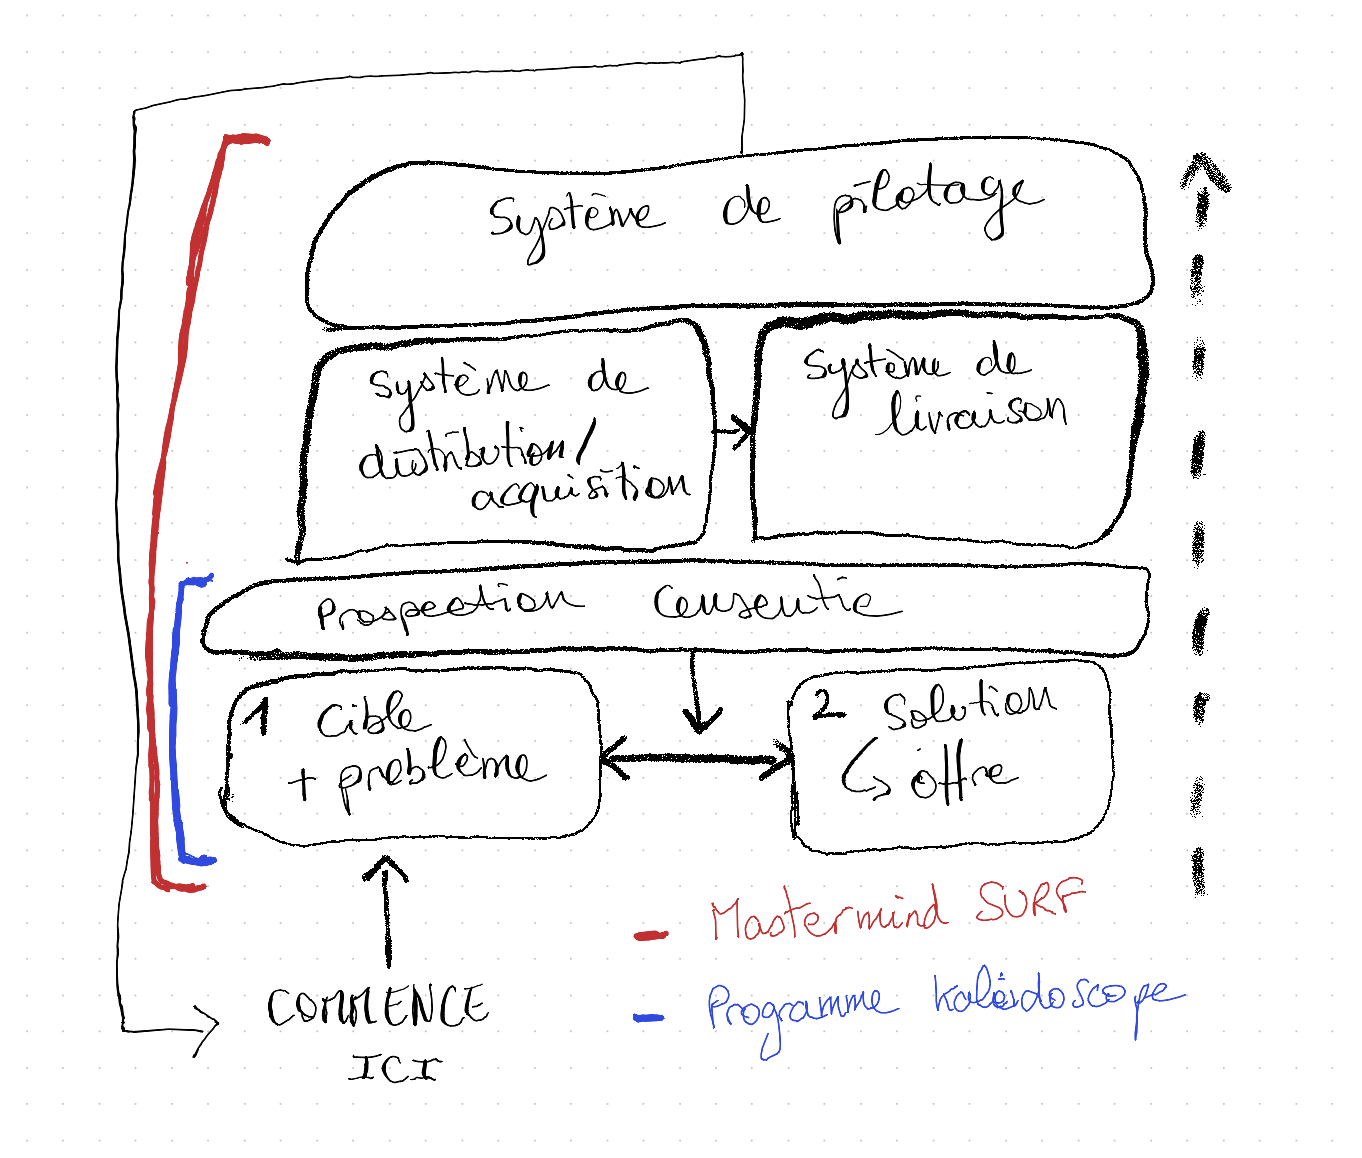 Système de pilotage
Système de
distribution/
acquisition
Système de
livraison
Prospection Consentie
1 Cible
+ problème
2 Solution
offre
COMMENCE
ICI
Mastermind SURF
Programme Kaléidoscope